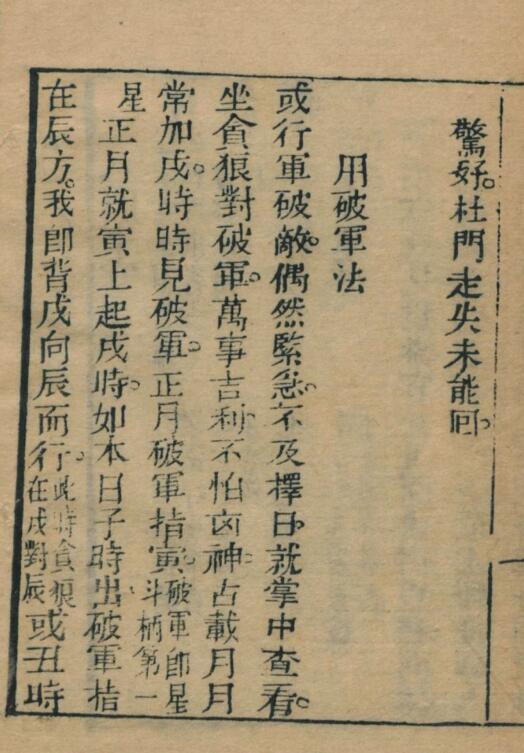 驚好。杜門走失未能回。
用破軍法
或行軍破敵。偶然緊急。不及擇日。就掌中查看。
坐貪狼對破軍。萬事吉利。不怕凶神。占載月月
常加戌。時時見破軍。正月破軍指寅。破軍即星斗柄第一
星正月就寅上起戌時。如本日子時出。破軍指
在辰方。我即背戌向辰而行。此時貪狼在戌對辰或丑時